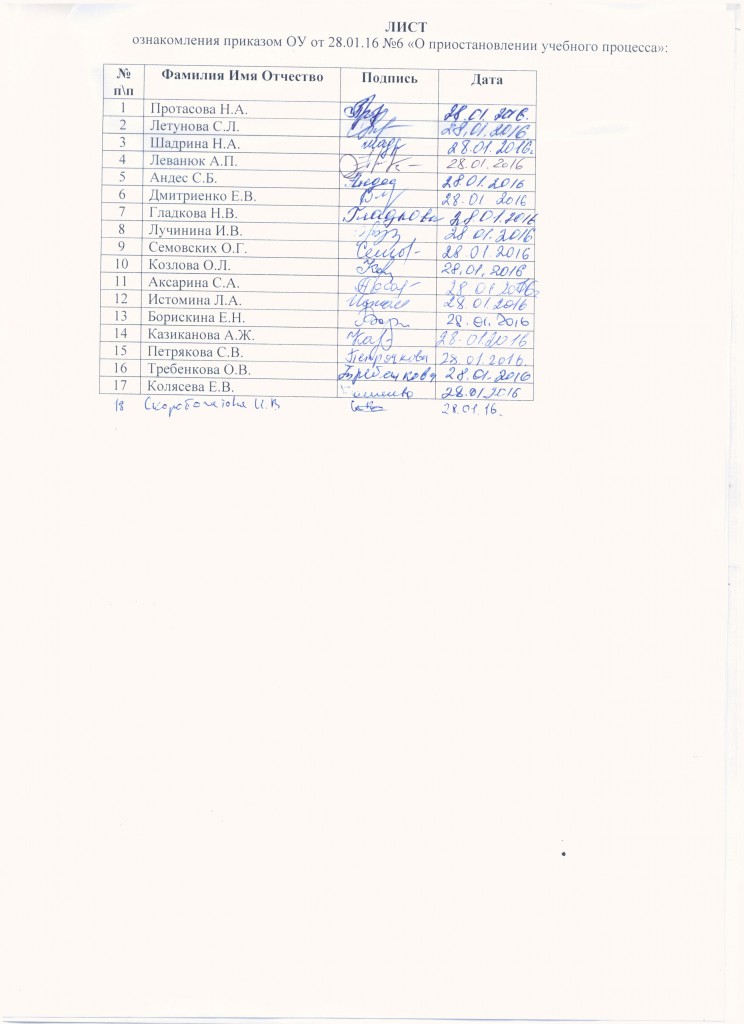 ЛИСТ
ознакомления приказом ОУ от 28.01.16 №6 «О приостановлении учебного процесса»:
№ п\п Фамилия Имя Отчество Подпись Дата
1 Протасова Н.А. 28.01.2016.
2 Летунова С.Л. 28.01.2016
3 Шадрина Н.А. 28.01.2016г
4 Леванюк А.П. 28.01.2016
5 Андес С.Б. 28.01.2016
6 Дмитриенко Е.В. 28.01 2016
7 Гладкова Н.В. Гладкова 28.01.2016
8 Лучинина И.В. 28.01.2016
9 Семовских О.Г. 28.01.2016
10 Козлова О.Л. 28.01.2016
11 Аксарина С.А. 28 01 2016г
12 Истомина Л.А. 28.01.2016
13 Борискина Е.Н. 28.01.2016
14 Казиканова А.Ж. 28.01.2016
15 Петрякова С.В. 28.01.2016.
16 Требенкова О.В. Требенкова 28.01.2016
17 Колясева Е.В. 28.01.2016
18 И.В 28.01.16.